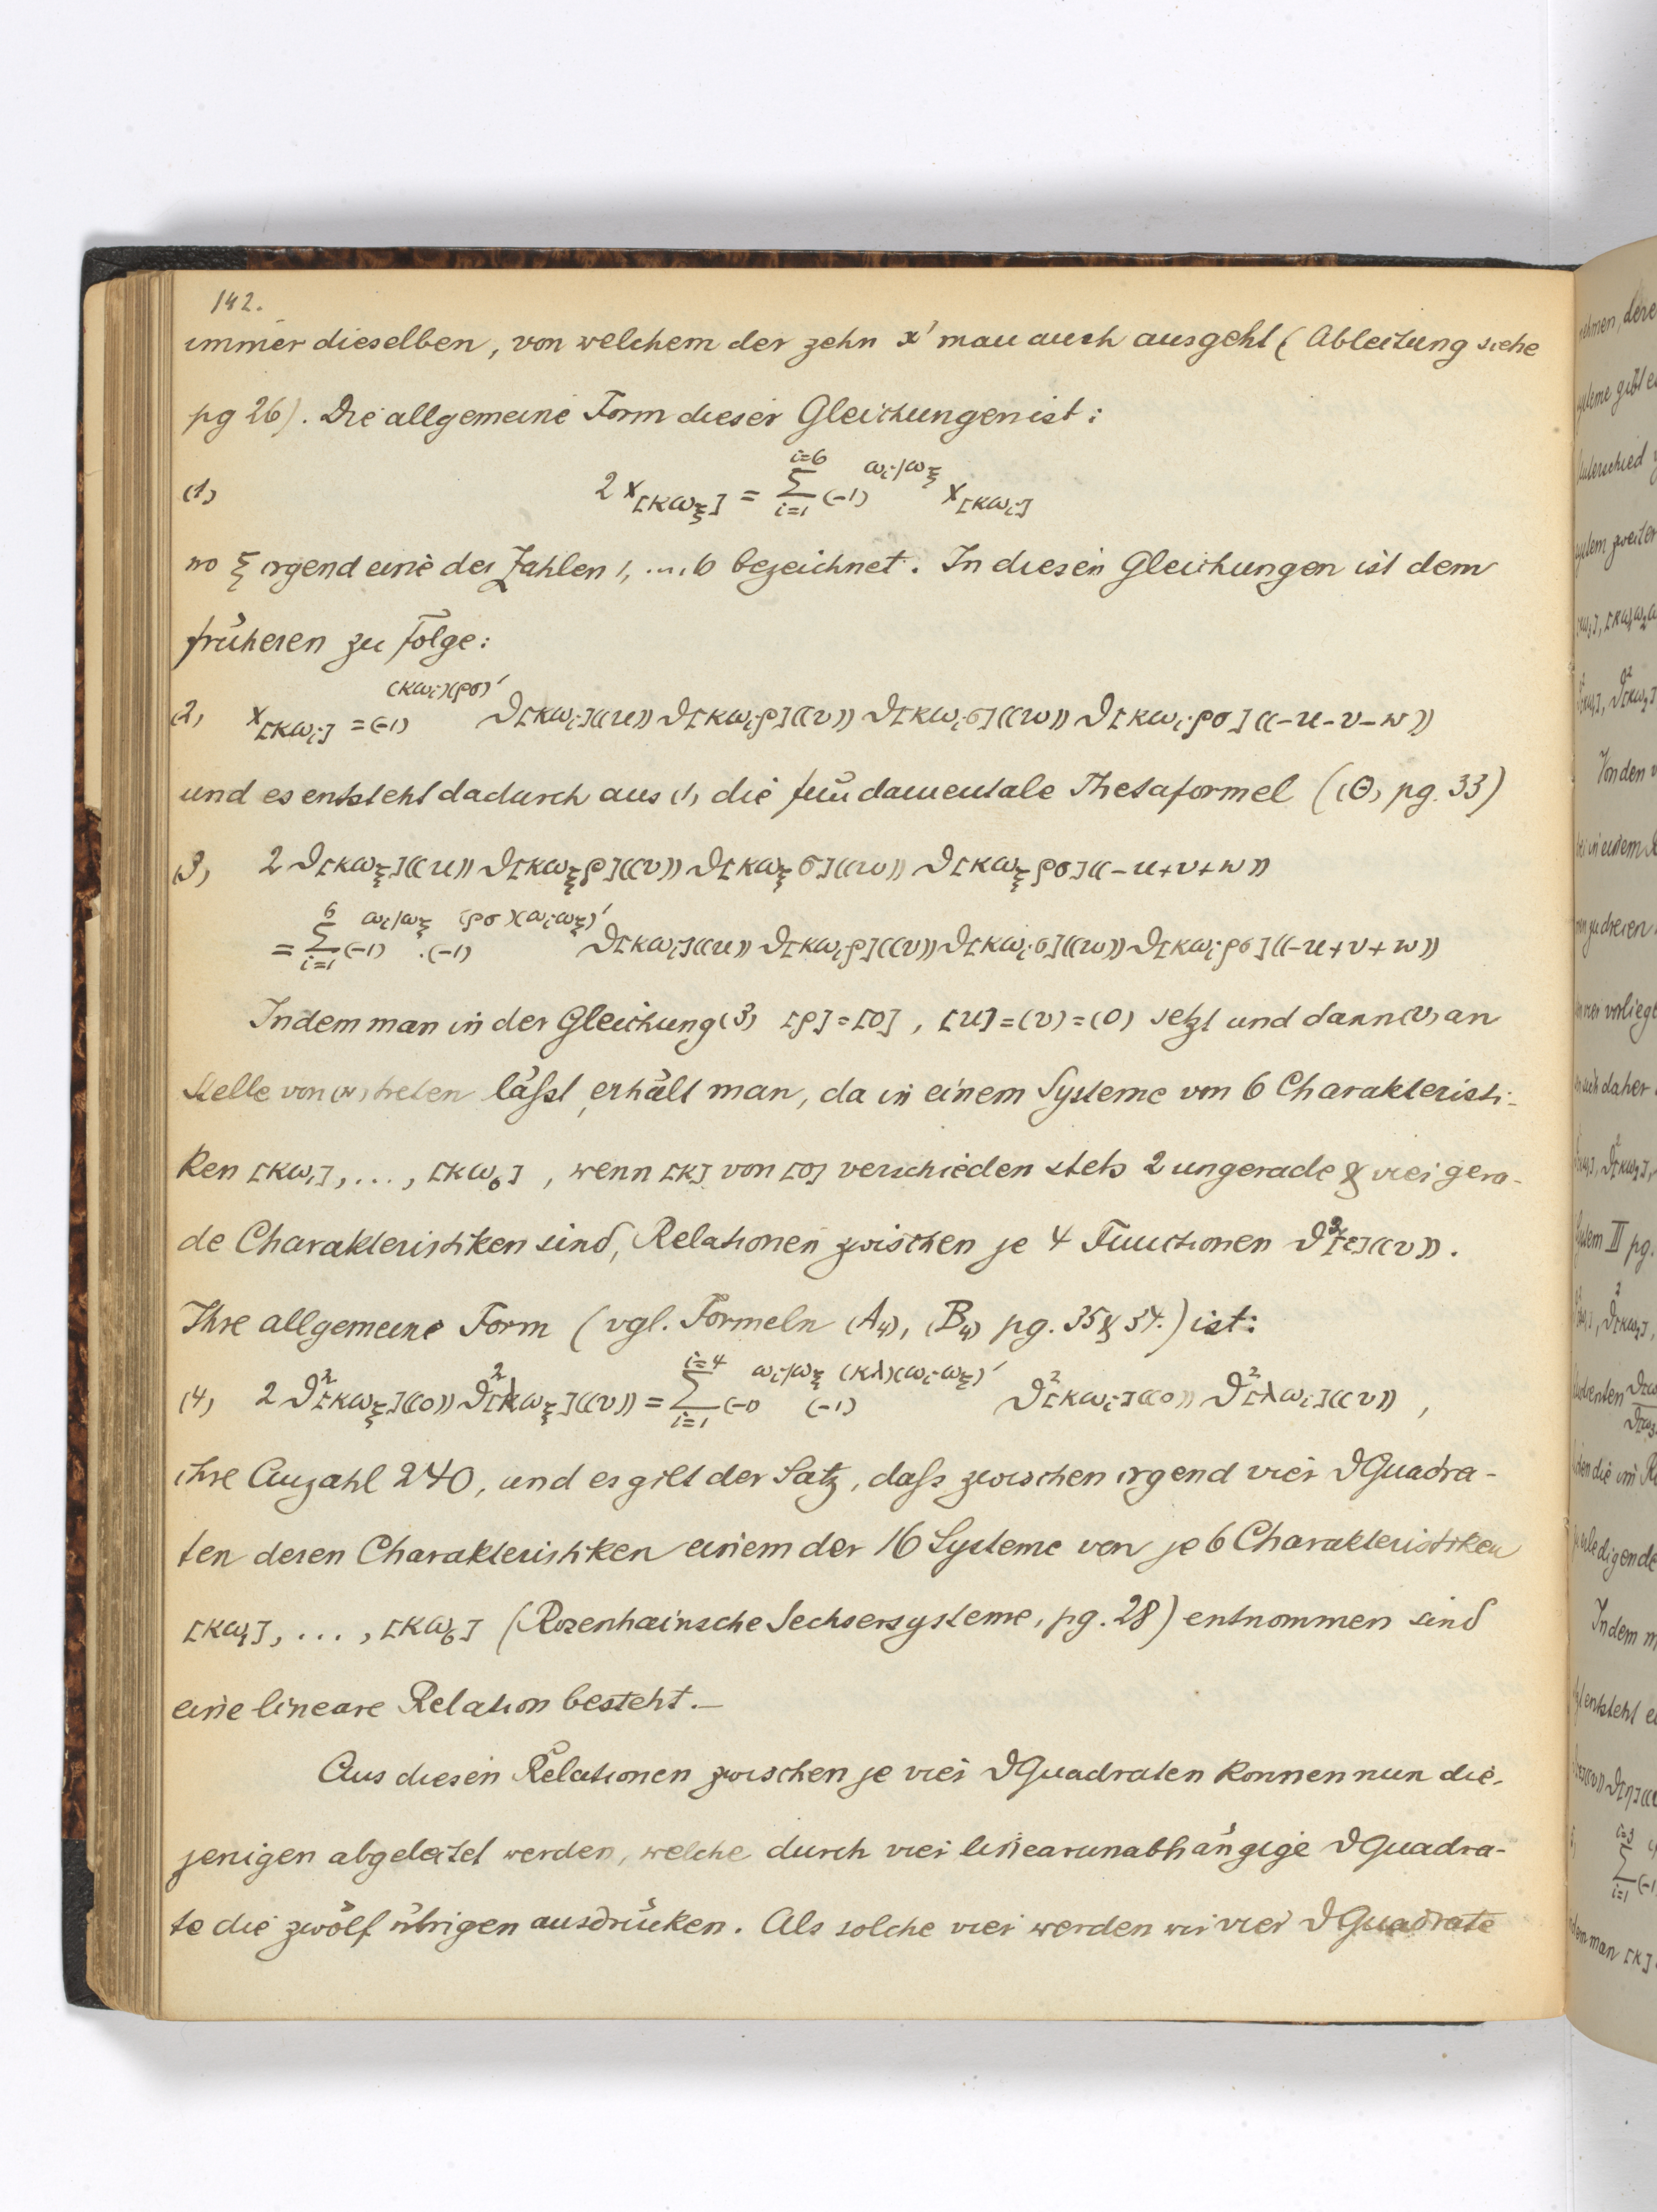 142.
immer dieselben, von welchem der zehn x' man auch ausgeht (Ableitung siehe
pg 26). Die allgemeine Form dieser Gleichungen ist:
(1) 2 x[κω_ξ] = Σ_{i=1}^{i=6} (-1)^{ω_i/ω_ξ} x[κω_i]
wo ξ irgend eine der Zahlen 1, ..., 6 bezeichnet. In diesen Gleichungen ist dem
früheren zu Folge:
(2) x[κω_i] = (-1)^{(κω_i)(ρσ)'} ϑ[κω_i]((u)) ϑ[κω_iρ]((v)) ϑ[κω_iσ]((w)) ϑ[κω_iρσ]((-u-v-w))
und es entsteht dadurch aus (1) die fundamentale Thetaformel ((Θ) pg. 33)
(3) 2 ϑ[κω_ξ]((u)) ϑ[κω_ξρ]((v)) ϑ[κω_ξσ]((w)) ϑ[κω_ξρσ]((-u+v+w))
= Σ_{i=1}^{6} (-1)^{ω_i/ω_ξ} . (-1)^{(ρσ)(ω_iω_ξ)'} ϑ[κω_i]((u)) ϑ[κω_iρ]((v)) ϑ[κω_iσ]((w)) ϑ[κω_iρσ]((-u+v+w))
Indem man in der Gleichung (3) [ρ]=[0], [u]=(v)=(0) setzt und dann (v) an
Stelle von (w) treten läſst, erhält man, da in einem Systeme von 6 Charakteristi-
ken [κω_1], ..., [κω_6], wenn [κ] von [0] verschieden stets 2 ungerade & vier gera-
de Charakteristiken sind, Relationen zwischen je 4 Functionen ϑ²[ε]((v)).
Ihre allgemeine Form (vgl. Formeln (A_4), (B_4) pg. 35 & 37.) ist:
(4) 2 ϑ²[κω_ξ]((0)) ϑ²[λω_ξ]((v)) = Σ_{i=1}^{i=4} (-1)^{ω_i/ω_ξ} (-1)^{(κλ)(ω_iω_ξ)'} ϑ²[κω_i]((0)) ϑ²[λω_i]((v)),
ihre Anzahl 240, und es gilt der Satz, daſs zwischen irgend vier ϑ Quadra-
ten deren Charakteristiken einem der 16 Systeme von je 6 Charakteristiken
[κω_1], ..., [κω_6] (Rosenhainsche Sechsersysteme, pg. 28) entnommen sind
eine lineare Relation besteht.—
Aus diesen Relationen zwischen je vier ϑ Quadraten können nun die-
jenigen abgeleitet werden, welche durch vier linearunabhängige ϑ Quadra-
te die zwölf übrigen ausdrücken. Als solche vier werden wir vier ϑ Quadrate